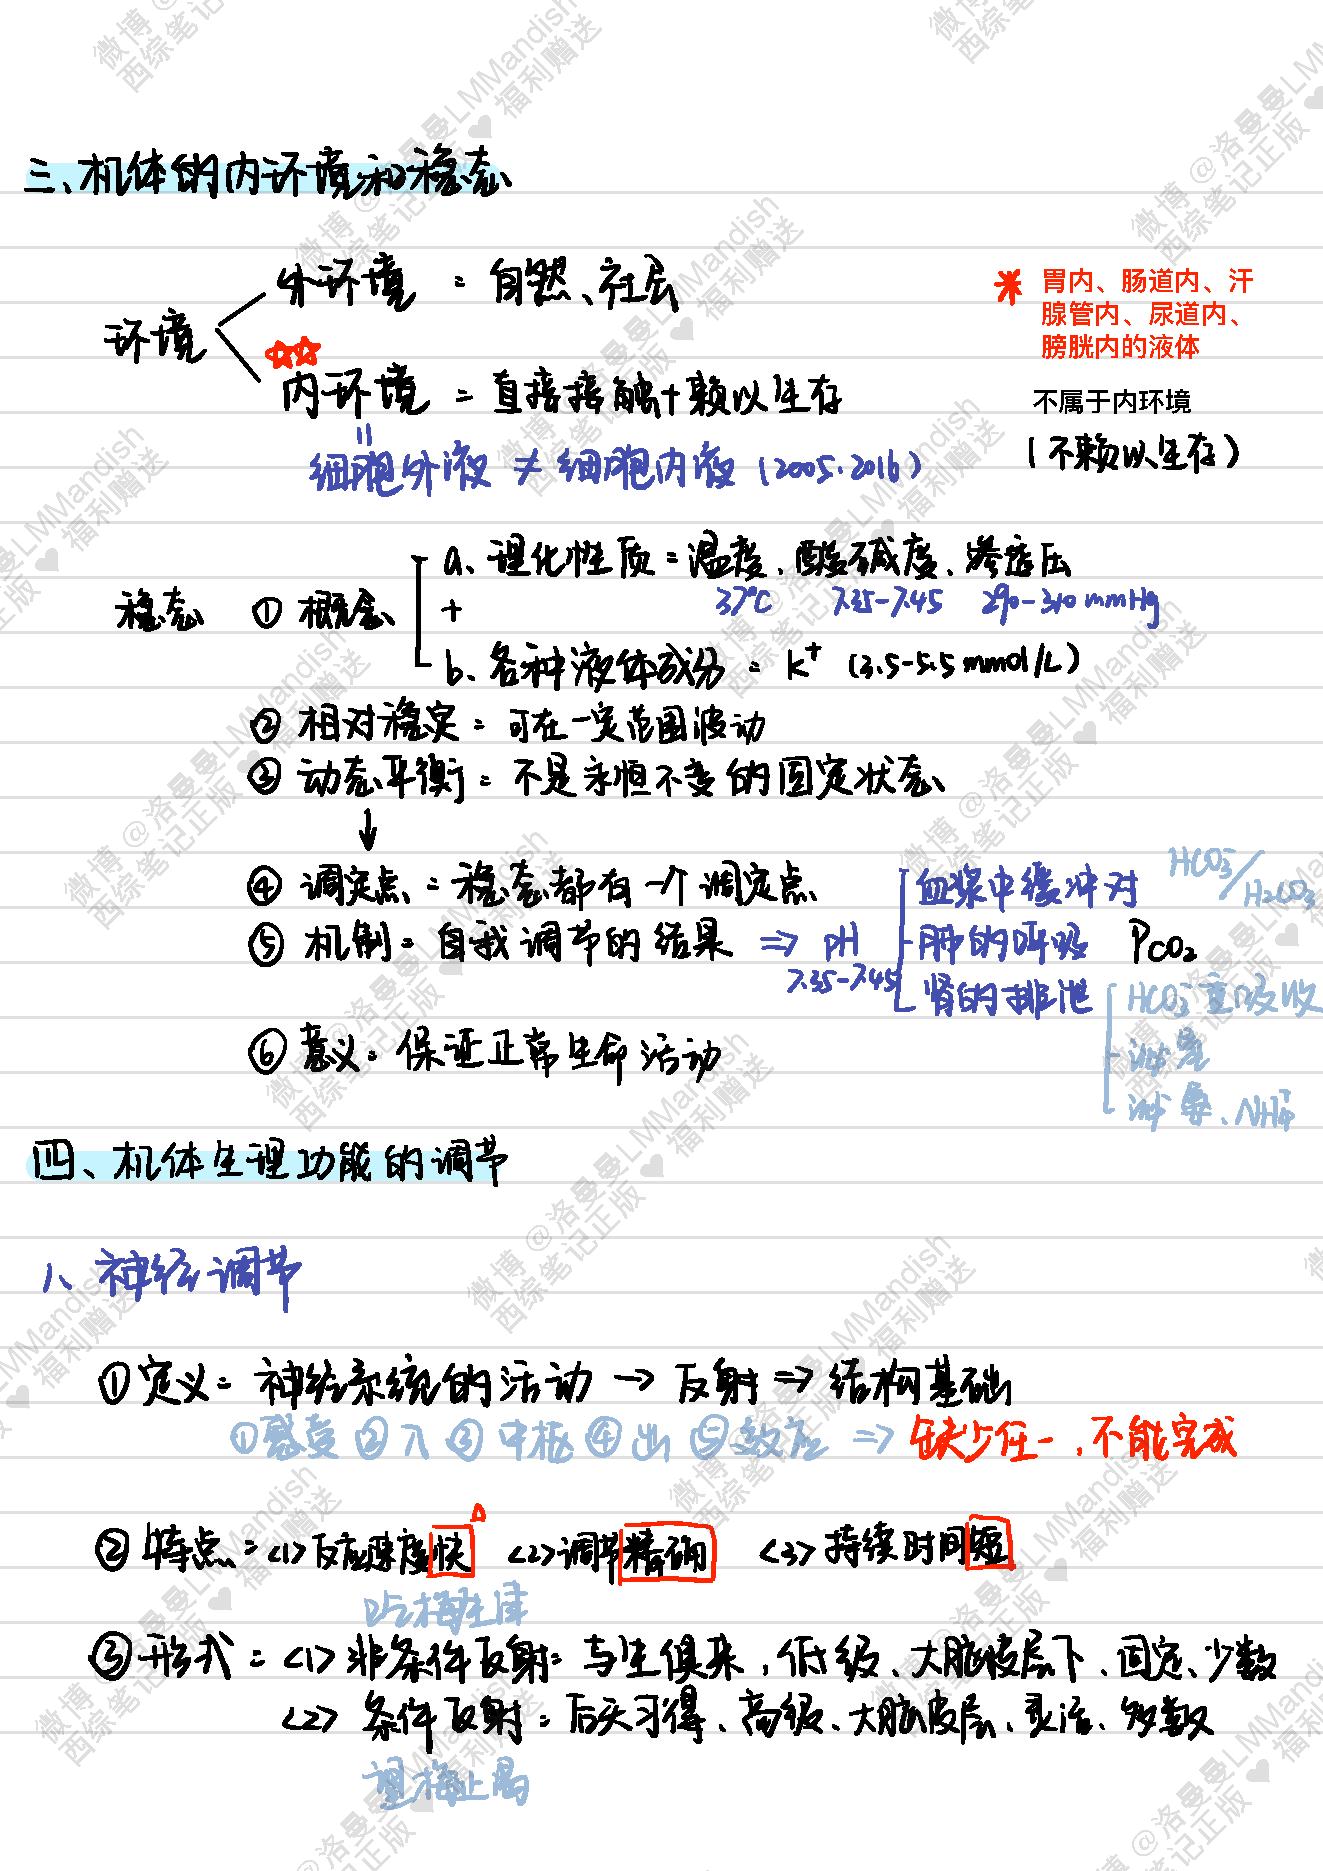 三、机体的内环境和稳态
外环境 = 自然、社会
环境
内环境 = 直接接触+赖以生存
= 
细胞外液 ≠ 细胞内液 (2005.2016)
* 胃内、肠道内、汗
腺管内、尿道内、
膀胱内的液体
不属于内环境
(不赖以生存)
稳态 ① 概念
a、理化性质 = 温度、酸碱度、渗透压
37℃ 7.35-7.45 290-310 mmHg
+
b、各种液体成分 = K⁺ (3.5-5.5 mmol/L)
② 相对稳定 = 可在一定范围波动
③ 动态平衡 = 不是永恒不变的固定状态
↓
④ 调定点 = 稳态都有一个调定点
⑤ 机制 = 自我调节的结果 ⇒ pH
7.35-7.45
血浆中缓冲对 HCO₃⁻/H₂CO₃
肺的呼吸 Pco₂
肾的排泄
HCO₃⁻重吸收
泌尿
泌氨、NH₄⁺
⑥ 意义 = 保证正常生命活动
四、机体生理功能的调节
1、神经调节
① 定义 = 神经系统的活动 → 反射 ⇒ 结构基础
①感受 ②入 ③中枢 ④出 ⑤效应 ⇒ 缺少任一,不能完成
② 特点 = <1> 反应速度快 <2> 调节精确 <3> 持续时间短
吃梅生津
③ 形式 = <1> 非条件反射 = 与生俱来,低级、大脑皮层下、固定、少数
<2> 条件反射 = 后天习得、高级、大脑皮层、灵活、多数
望梅止渴
微博 @洛曼曼LMMandish
西综笔记正版 ♥ 福利赠送